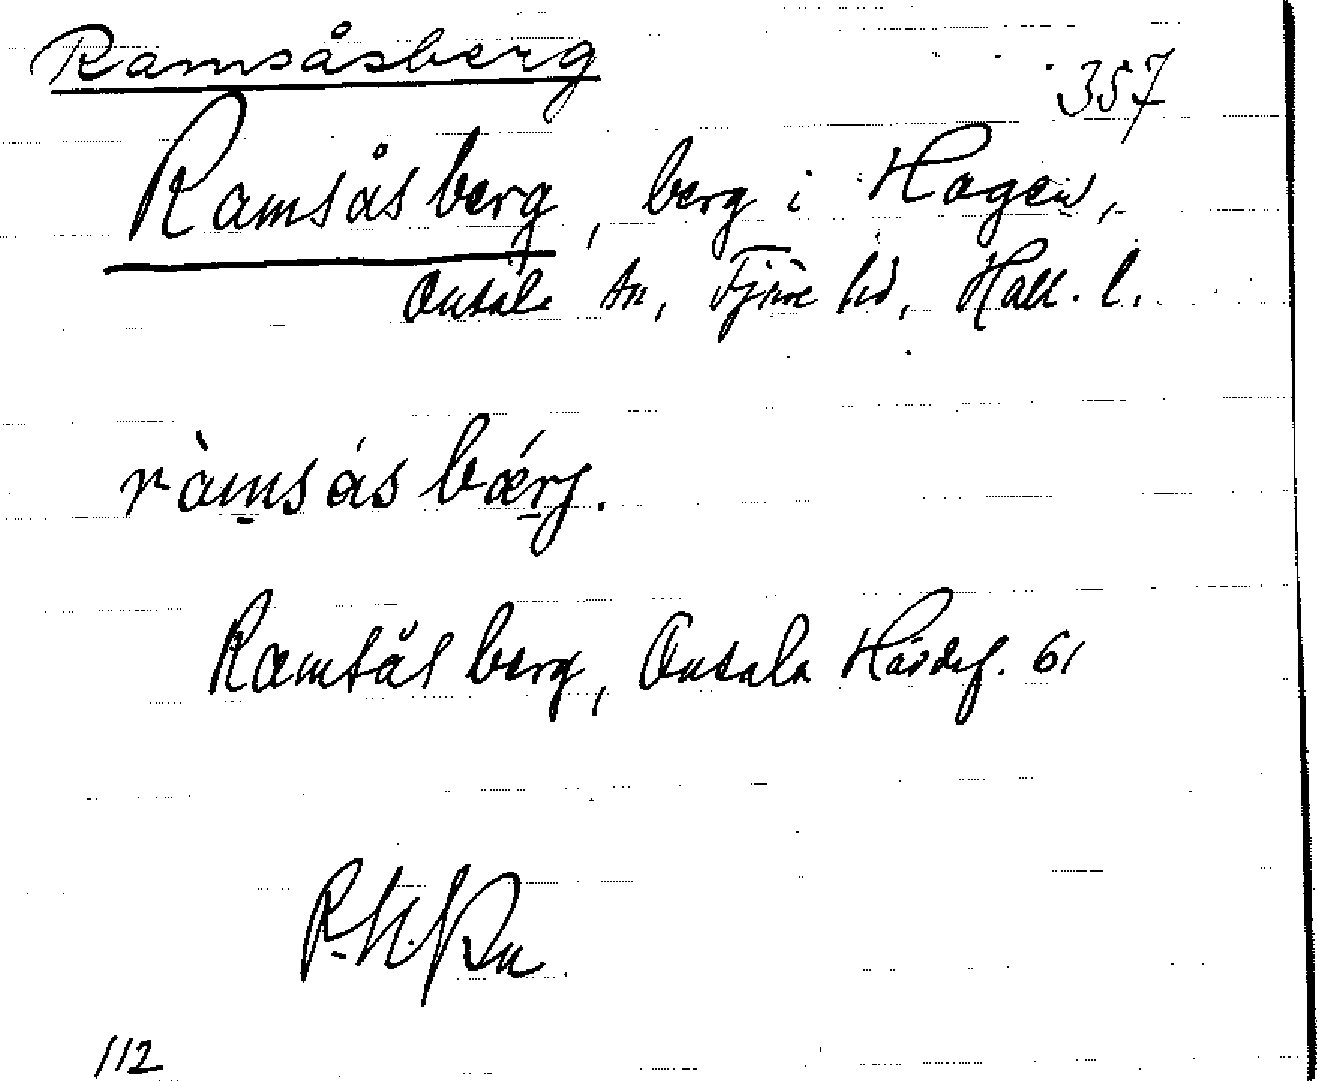 Ramsåsberg
357
Ramsåsberg, berg i Hagen,
Onsala sn, Fjäre hd, Hall. l.
ràmsås bǽrj.
Ramsås berg, Onsala Hårdsf. 61
112